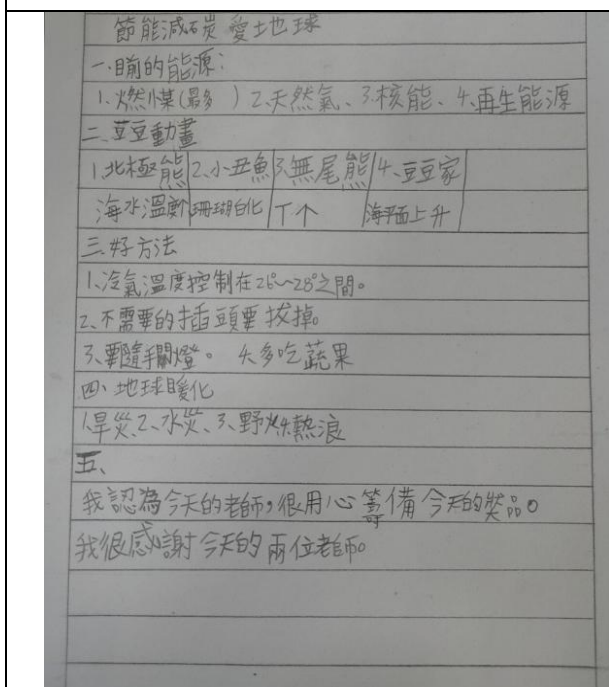 節能減碳 愛土地球
一、目前的能源:
1.燃煤(最多 ) 2.天然氣、3.核能、4.再生能源
二、豆豆動畫
1.北極熊 2.小丑魚 3.無尾熊 4.豆豆家
海水溫度 珊瑚白化 T↑ 海平面上升
三、好方法
1.冷氣溫度控制在26°~28°之間。
2.不需要的插頭要拔掉。
3.要隨手關燈。 4.多吃蔬果
四、地球暖化
1.旱災、2.水災、3.野火4.熱浪
五、
我認為今天的老師,很用心籌備今天的獎品。
我很感謝今天的兩位老師。